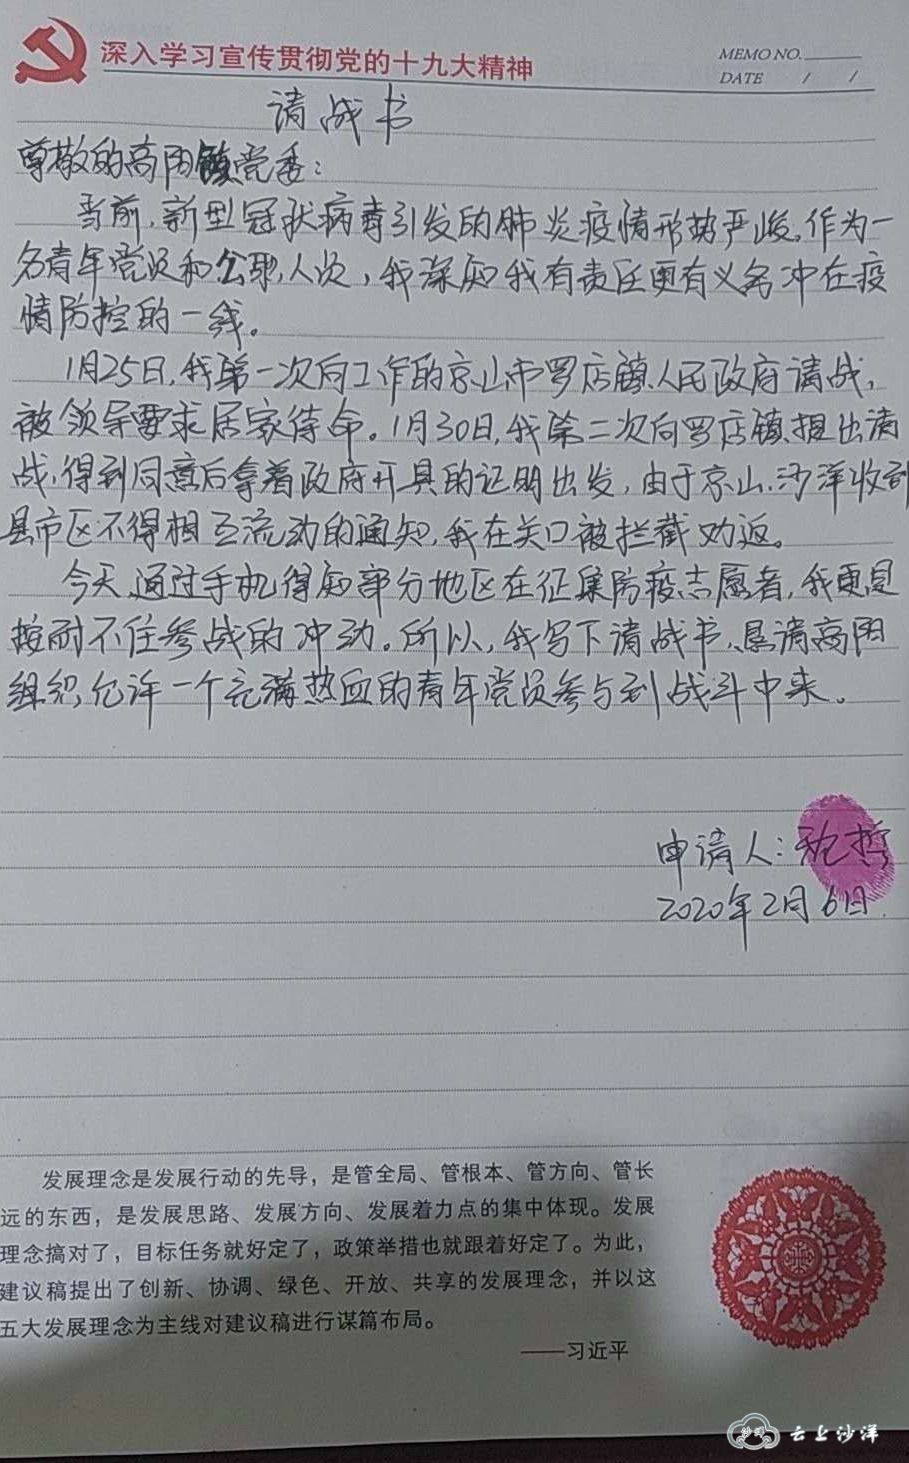 深入学习宣传贯彻党的十九大精神
MEMO NO.
DATE / /
请战书
尊敬的高阳镇党委：
当前，新型冠状病毒引发的肺炎疫情形势严峻。作为一
名青年党员和公职人员，我深知我有责任更有义务冲在疫
情防控的一线。
1月25日，我第一次向工作的京山市罗店镇人民政府请战，
被领导要求居家待命。1月30日，我第二次向罗店镇提出请
战，得到同意后拿着政府开具的证明出发，由于京山、沙洋收到
县市区不得相互流动的通知，我在关口被拦截劝返。
今天，通过手机得知部分地区在征集防疫志愿者，我更是
按耐不住参战的冲动。所以，我写下请战书，恳请高阳
组织允许一个充满热血的青年党员参与到战斗中来。
申请人：哲
2020年2月6日
发展理念是发展行动的先导，是管全局、管根本、管方向、管长
远的东西，是发展思路、发展方向、发展着力点的集中体现。发展
理念搞对了，目标任务就好定了，政策举措也就跟着好定了。为此，
建议稿提出了创新、协调、绿色、开放、共享的发展理念，并以这
五大发展理念为主线对建议稿进行谋篇布局。
——习近平
云上沙洋